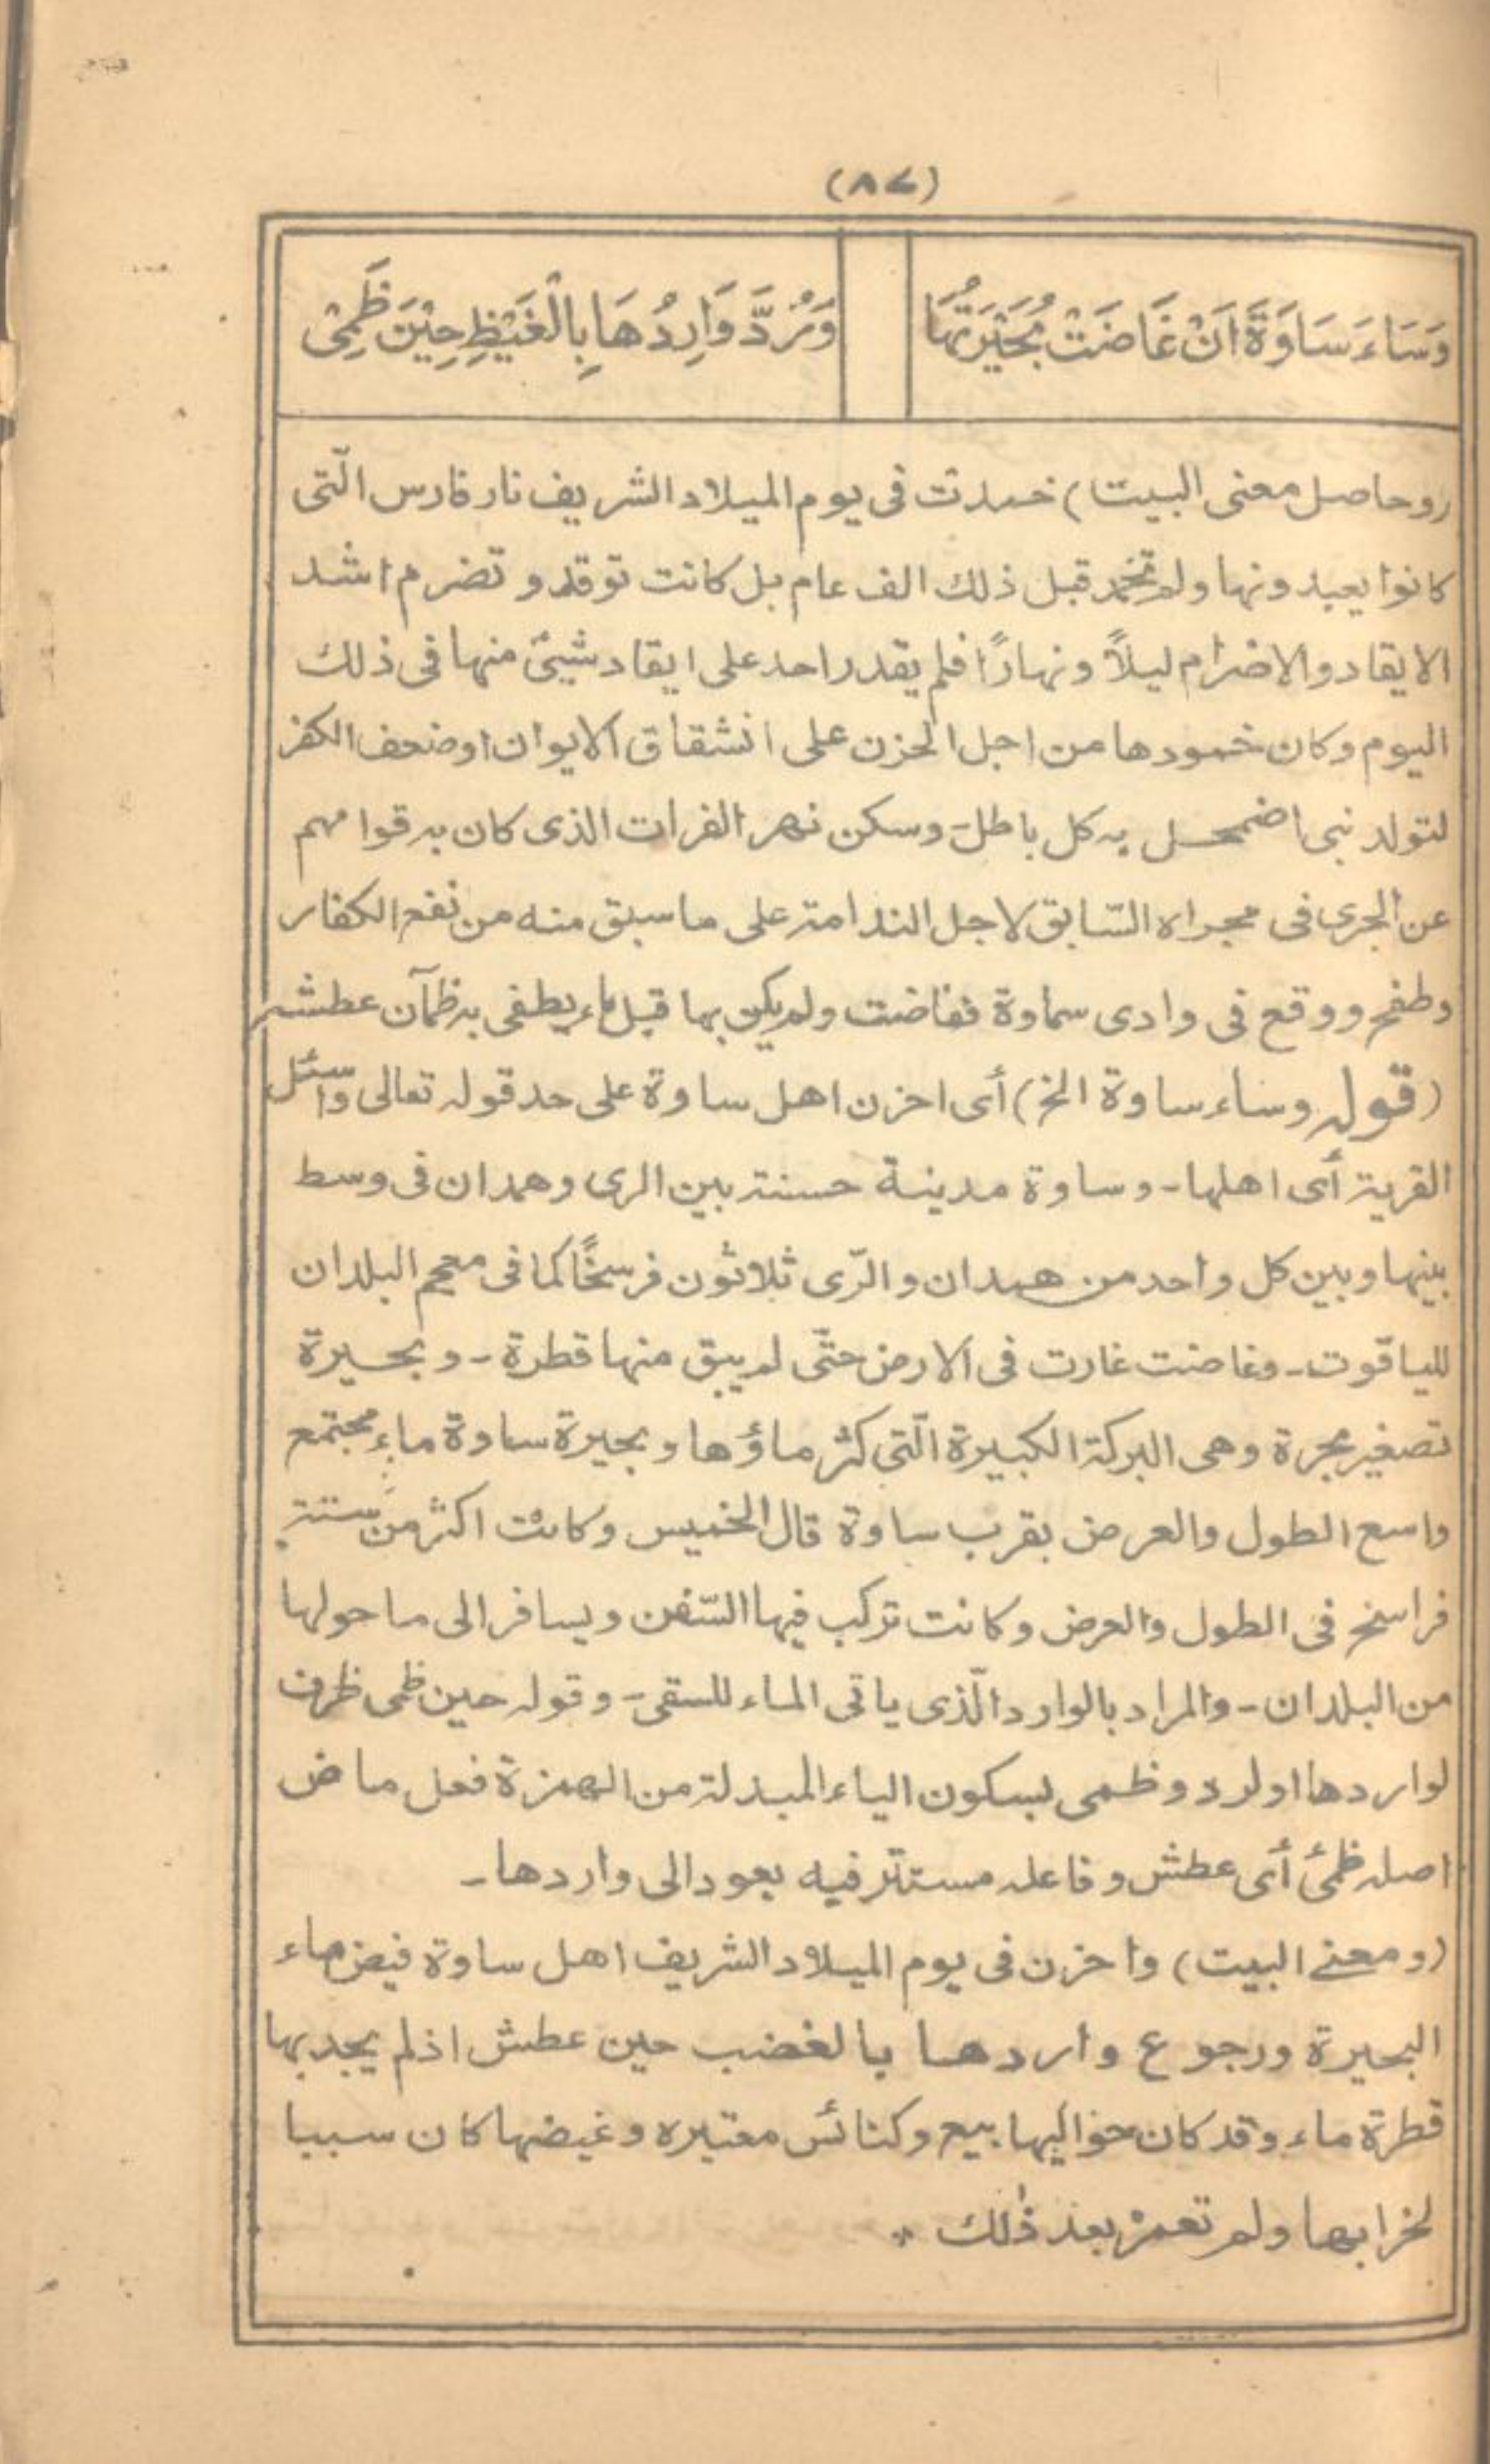 (٨٧)
وَسَاءَ سَاوَةَ اَنْ غَاضَتْ بُحَيْرَتُهَا
وَرُدَّ وَارِدُهَا بِالْغَيْظِ حِيْنَ ظَمِىْ
(وحاصل معنى البيت) خمدت فى يوم الميلاد الشريف نار فارس الّتى
كانوا يعبدونها ولم تخمد قبل ذلك الف عام بل كانت توقد و تضرم اشد
الايقاد والاضرام ليلاً و نهارًا فلم يقدر احد على ايقاد شيئ منها فى ذلك
اليوم وكان خمودها من اجل الحزن على انشقاق الايوان او ضعف الكفر
لتولد نبى اضمحل به كل باطل - وسكن نهر الفرات الذى كان به قوامهم
عن الجرى فى مجراه السّابق لاجل الندامة على ما سبق منه من نفع الكفار
وطفح ووقع فى وادى سماوة ففاضت ولم يكن بها قبل ماء يطفى به ظمآن عطشه
(قوله وساء ساوة الخ) أى احزن اهل ساوة على حد قوله تعالى واسئل
القرية أى اهلها - وساوة مدينة حسنة بين الرى وهمدان فى وسط
بينها وبين كل واحد من همدان والرّى ثلاثون فرسخًا كما فى معجم البلدان
للياقوت - وغاضت غارت فى الارض حتّى لم يبق منها قطرة - وبحيرة
تصغير بحرة وهى البركة الكبيرة الّتى كثر ماؤها و بحيرة ساوة ماء مجتمع
واسع الطول والعرض بقرب ساوة قال الخميس وكانت اكثر من ستة
فراسخ فى الطول والعرض وكانت تركب فيها السّفن ويسافر الى ما حولها
من البلدان - والمراد بالوارد الّذى ياتى الماء للسقى - وقوله حين ظمى ظرف
لواردها او لرد و ظمى بسكون الياء المبدلة من الهمزة فعل ماض
اصله ظمئ أى عطش وفاعله مستتر فيه يعود الى واردها -
(ومعنے البيت) واحزن فى يوم الميلاد الشريف اهل ساوة فيض ماء
البحيرة ورجوع واردها بالغضب حين عطش اذ لم يجد بها
قطرة ماء وقد كان حواليها بيع وكنائس معتبره وغيضها كان سببا
لخرابها ولم تعمر بعد ذٰلك *